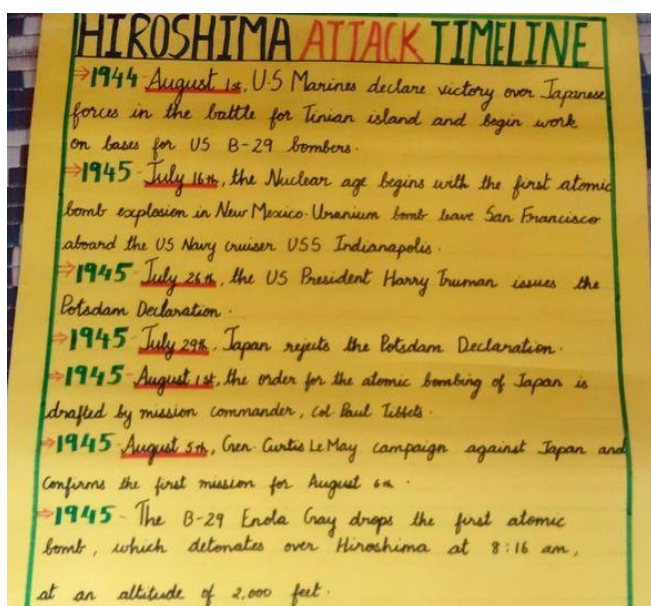 HIROSHIMA ATTACK TIMELINE
→1944 August 1st, U.S Marines declare victory over Japanese
forces in the battle for Tinian island and begin work
on bases for US B-29 bombers.
→1945 July 16th, the Nuclear age begins with the first atomic
bomb explosion in New Mexico. Uranium bomb leave San Francisco
aboard the US Navy cruiser USS Indianapolis.
→1945 July 26th, the US President Harry Truman issues the
Potsdam Declaration.
→1945 July 29th, Japan rejects the Potsdam Declaration.
→1945 August 1st, the order for the atomic bombing of Japan is
drafted by mission commander, Col. Paul Tibbets.
→1945 August 5th, Gen. Curtis LeMay campaign against Japan and
confirms the first mission for August 6th.
→1945 - The B-29 Enola Gay drops the first atomic
bomb, which detonates over Hiroshima at 8:16 am,
at an altitude of 2,000 feet.